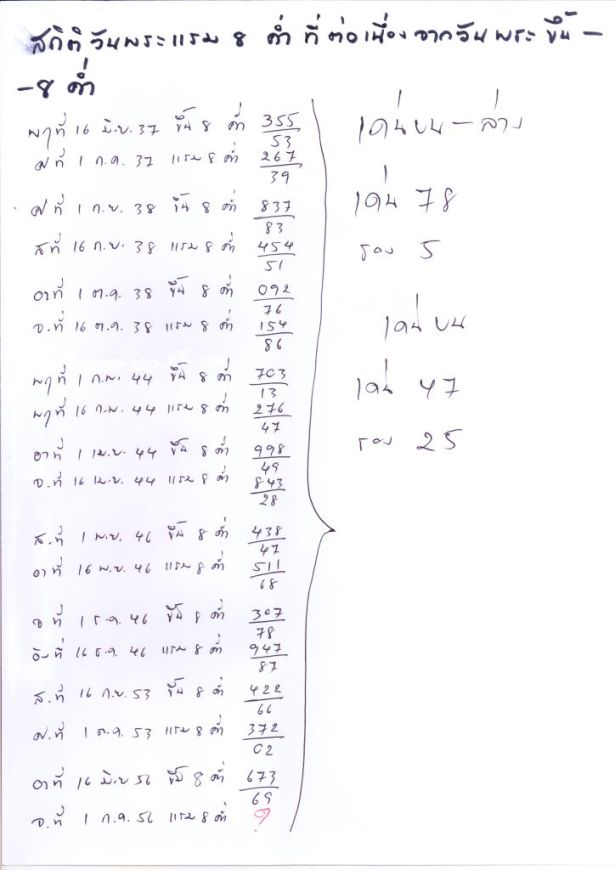 สถิติวันพระแรม 8 ค่ำ ที่ต่อเนื่องจากวันพระขึ้น -
- 8 ค่ำ
พฤที่ 16 มิ.ย. 37 ขึ้น 8 ค่ำ 355
53
ศที่ 1 ก.ค. 37 แรม 8 ค่ำ 267
39
ศที่ 1 ก.ย. 38 ขึ้น 8 ค่ำ 837
83
สที่ 16 ก.ย. 38 แรม 8 ค่ำ 454
51
อาที่ 1 ต.ค. 38 ขึ้น 8 ค่ำ 092
76
จ.ที่ 16 ต.ค. 38 แรม 8 ค่ำ 154
86
พฤที่ 1 ก.พ. 44 ขึ้น 8 ค่ำ 703
13
พฤที่ 16 ก.พ. 44 แรม 8 ค่ำ 276
47
อาที่ 1 เม.ย. 44 ขึ้น 8 ค่ำ 998
49
จ.ที่ 16 เม.ย. 44 แรม 8 ค่ำ 843
28
ส.ที่ 1 พ.ย. 46 ขึ้น 8 ค่ำ 438
47
อาที่ 16 พ.ย. 46 แรม 8 ค่ำ 511
68
จที่ 1 ธ.ค. 46 ขึ้น 8 ค่ำ 307
78
อังที่ 16 ธ.ค. 46 แรม 8 ค่ำ 947
87
ส.ที่ 16 ก.ย. 53 ขึ้น 8 ค่ำ 422
66
ศ.ที่ 1 ต.ค. 53 แรม 8 ค่ำ 372
02
อาที่ 16 มิ.ย 56 ขึ้น 8 ค่ำ 673
69
จ.ที่ 1 ก.ค. 56 แรม 8 ค่ำ ?
เด่นบน - ล่าง
เด่น 78
รอง 5
เด่นบน
เด่น 47
รอง 25